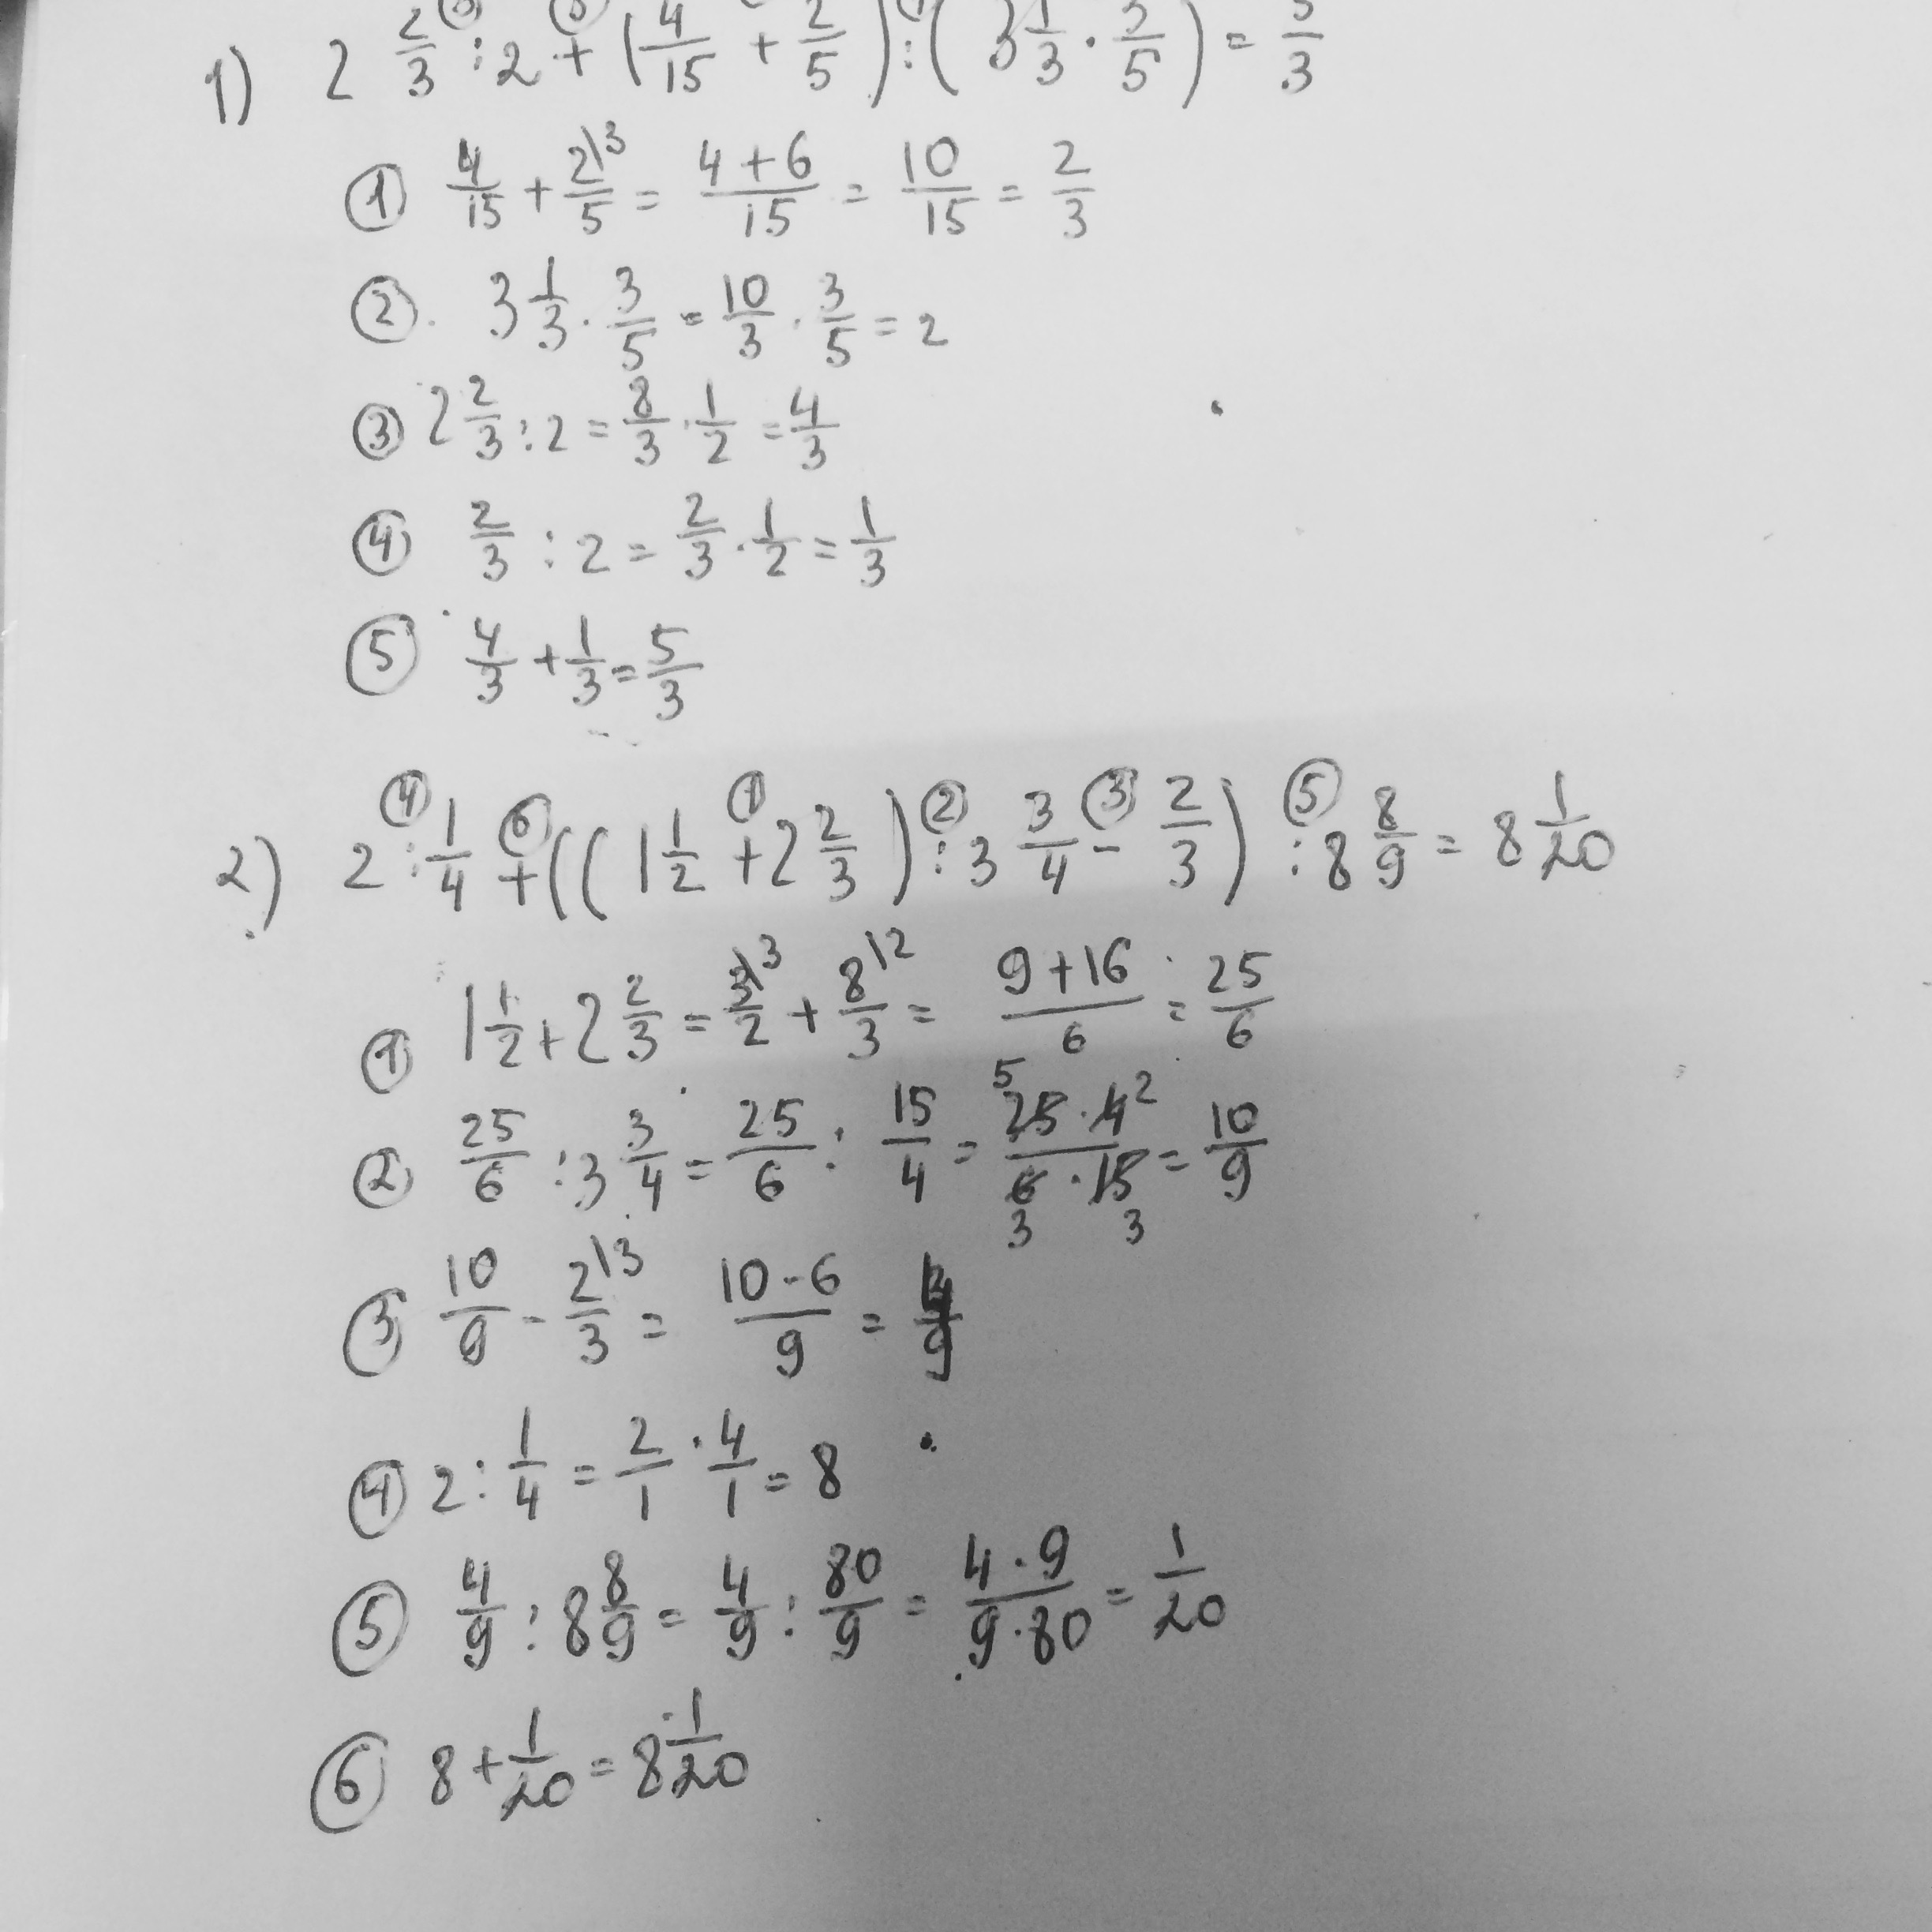 1) 2 2/3 : 2 + (4/15 + 2/5) : (3 1/3 · 3/5) = 5/3
① 4/15 + 2\3/5 = 4+6/15 = 10/15 = 2/3
②. 3 1/3 · 3/5 = 10/3 · 3/5 = 2
③ 2 2/3 : 2 = 8/3 · 1/2 = 4/3
④ 2/3 : 2 = 2/3 · 1/2 = 1/3
⑤ 4/3 + 1/3 = 5/3
④ ⑥ ① ② ③ ⑤
2) 2 : 1/4 + ((1 1/2 + 2 2/3) : 3 3/4 - 2/3) : 8 8/9 = 8 1/20
① 1 1/2 + 2 2/3 = 3\3/2 + 8\2/3 = 9+16/6 = 25/6
② 25/6 : 3 3/4 = 25/6 : 15/4 = 5 25 · 4 2/6 3 · 15 3 = 10/9
③ 10/9 - 2\3/3 = 10-6/9 = 4/9
④ 2 : 1/4 = 2/1 · 4/1 = 8
⑤ 4/9 : 8 8/9 = 4/9 : 80/9 = 4·9/9·80 = 1/20
⑥ 8 + 1/20 = 8 1/20